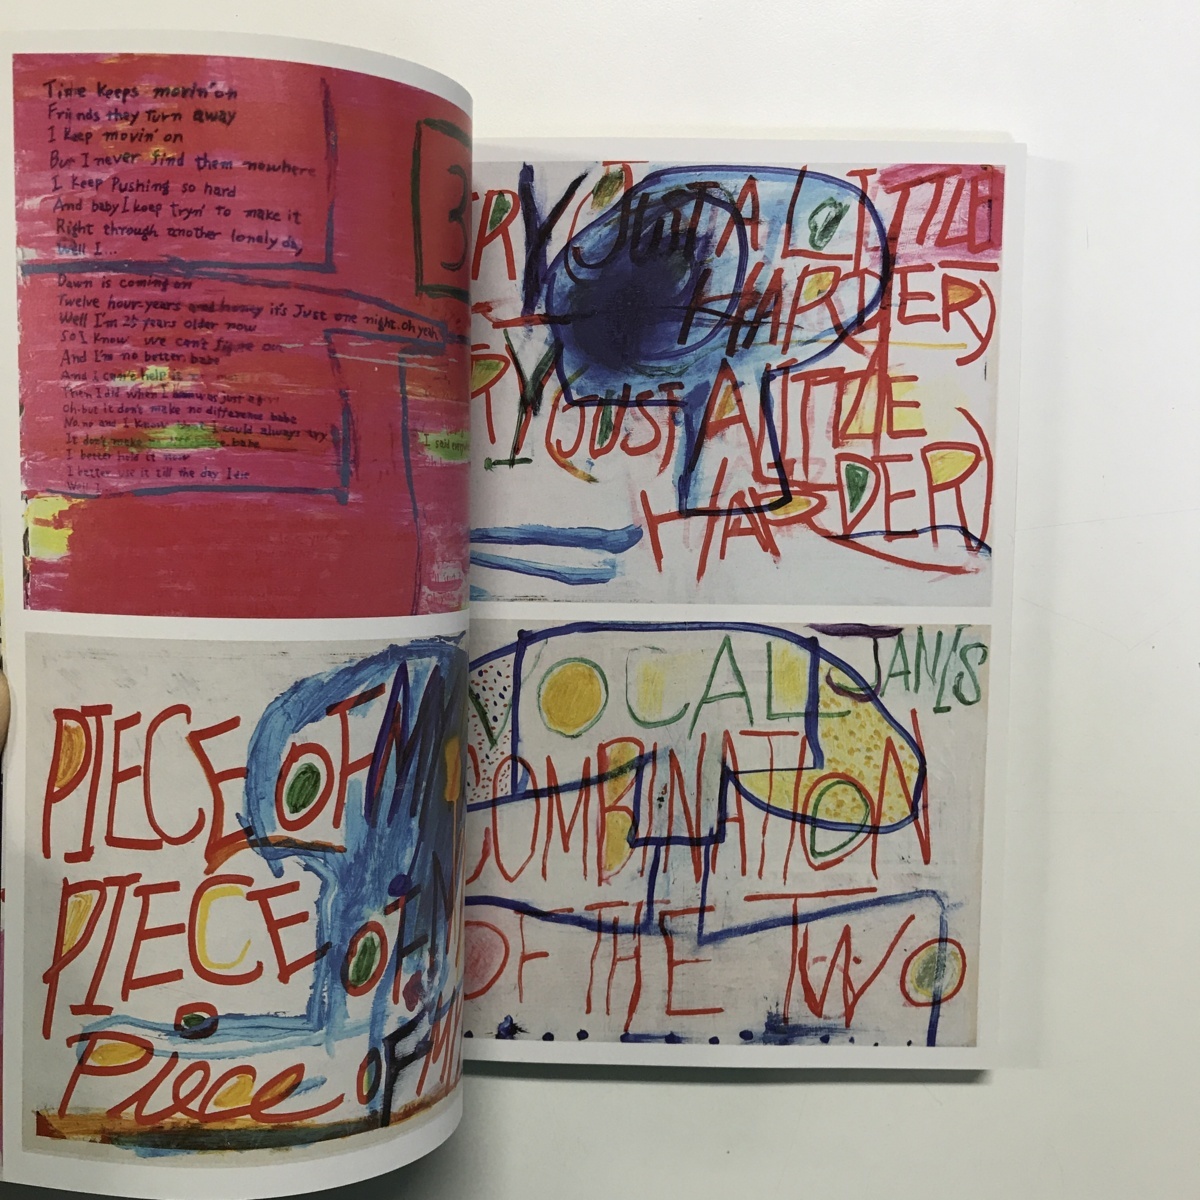 Time keeps movin' on
Friends they turn away
I keep movin' on
But I never find them nowhere
I keep Pushing so hard
And baby I keep tryn' to make it
Right through another lonely day
Well I...
Dawn is coming on
Twelve hour-years and honey it's just one night. oh yeah
Well I'm 25 years older now
So I know we can't
And I'm no better. babe
And I can't help
Then I did when I was just a
Oh but it don't make no difference babe
No, no and I know that I could always try
It don't make babe
I better hold it now
I better use it till the day I die
Well I
3
I said
PIECE OF M
PIECE OF M
Piece OF M
RY (JUST A LITTLE
HARDER)
RY (JUST A LITTLE
HARDER)
VOCAL JANIS
COMBINATION
OF THE TWO